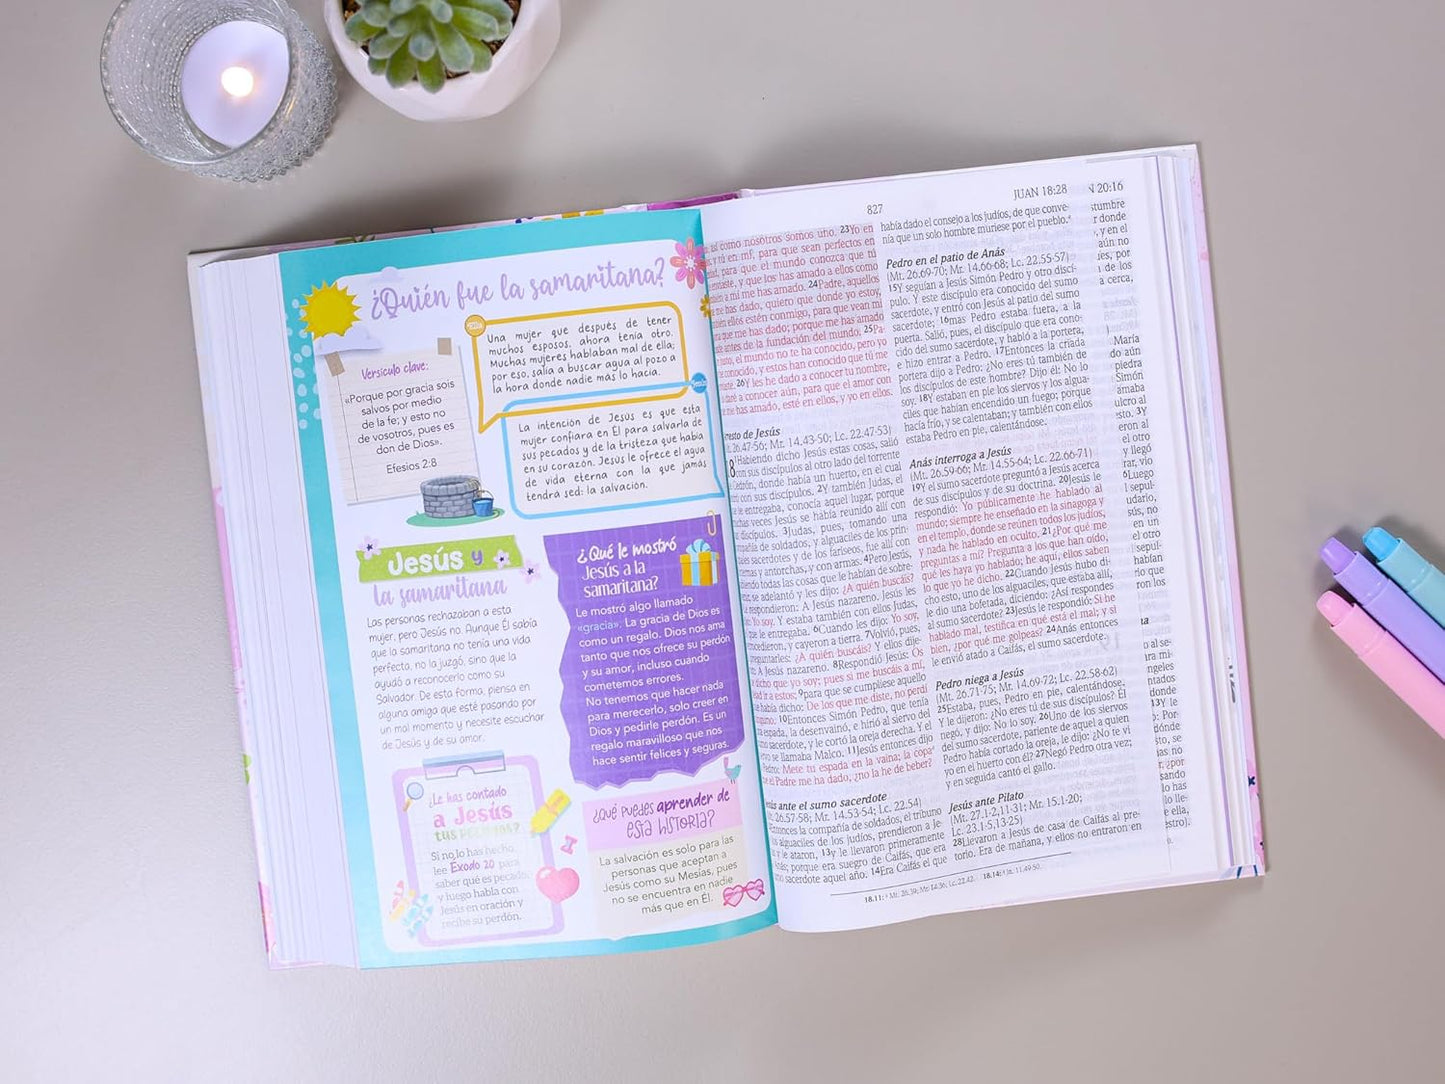 ¿Quién fue la samaritana?
Ella
Una mujer que después de tener
muchos esposos, ahora tenía otro.
Muchas mujeres hablaban mal de ella;
por eso, salía a buscar agua al pozo a
la hora donde nadie más lo hacía.
Versículo clave:
«Porque por gracia sois
salvos por medio
de la fe; y esto no
de vosotros, pues es
don de Dios».
Efesios 2:8
Jesús
La intención de Jesús es que esta
mujer confiara en Él para salvarla de
sus pecados y de la tristeza que había
en su corazón. Jesús le ofrece el agua
de vida eterna con la que jamás
tendrá sed: la salvación.
Jesús y
la samaritana
Las personas rechazaban a esta
mujer, pero Jesús no. Aunque Él sabía
que la samaritana no tenía una vida
perfecta, no la juzgó, sino que la
ayudó a reconocerlo como su
Salvador. De esta forma, piensa en
alguna amiga que esté pasando por
un mal momento y necesite escuchar
de Jesús y de su amor.
¿Qué le mostró
Jesús a la
samaritana?
Le mostró algo llamado
«gracia». La gracia de Dios es
como un regalo. Dios nos ama
tanto que nos ofrece su perdón
y su amor, incluso cuando
cometemos errores.
No tenemos que hacer nada
para merecerlo, solo creer en
Dios y pedirle perdón. Es un
regalo maravilloso que nos
hace sentir felices y seguras.
¿Le has contado
a Jesús
tus pecados?
Si no lo has hecho,
lee Éxodo 20 para
saber qué es pecado,
y luego habla con
Jesús en oración y
recibe su perdón.
¿Qué puedes aprender de
esta historia?
La salvación es solo para las
personas que aceptan a
Jesús como su Mesías, pues
no se encuentra en nadie
más que en Él.
827
JUAN 18:28
N 20:16
así como nosotros somos uno. 23Yo en
y tú en mí, para que sean perfectos en
para que el mundo conozca que tú
y que los has amado a ellos como
a mí me has amado. 24Padre, aquellos
me has dado, quiero que donde yo estoy,
ellos estén conmigo, para que vean mi
que me has dado; porque me has amado
antes de la fundación del mundo. 25Pa-
justo, el mundo no te ha conocido, pero yo
conocido, y estos han conocido que tú me
26Y les he dado a conocer tu nombre,
a conocer aún, para que el amor con
me has amado, esté en ellos, y yo en ellos.
de Jesús
26.47-56; Mr. 14.43-50; Lc. 22.47-53)
1Habiendo dicho Jesús estas cosas, salió
con sus discípulos al otro lado del torrente
Cedrón, donde había un huerto, en el cual
con sus discípulos. 2Y también Judas, el
le entregaba, conocía aquel lugar, porque
veces Jesús se había reunido allí con
discípulos. 3Judas, pues, tomando una
de soldados, y alguaciles de los prin-
sacerdotes y de los fariseos, fue allí con
y antorchas, y con armas. 4Pero Jesús,
todas las cosas que le habían de sobre-
se adelantó y les dijo: ¿A quién buscáis?
respondieron: A Jesús nazareno. Jesús les
Yo soy. Y estaba también con ellos Judas,
que le entregaba. 6Cuando les dijo: Yo soy,
y cayeron a tierra. 7Volvió, pues,
¿A quién buscáis? Y ellos dije-
A Jesús nazareno. 8Respondió Jesús: Os
dicho que yo soy; pues si me buscáis a mí,
ir a estos; 9para que se cumpliese aquello
había dicho: De los que me diste, no perdí
10Entonces Simón Pedro, que tenía
espada, la desenvainó, e hirió al siervo del
sacerdote, y le cortó la oreja derecha. Y el
se llamaba Malco. 11Jesús entonces dijo
Pedro: Mete tu espada en la vaina; la copa
el Padre me ha dado, ¿no la he de beber?
ante el sumo sacerdote
26.57-58; Mr. 14.53-54; Lc. 22.54)
la compañía de soldados, el tribuno
alguaciles de los judíos, prendieron a Je-
y le ataron, 13y le llevaron primeramente
Anás; porque era suegro de Caifás, que era
sacerdote aquel año. 14Era Caifás el que
había dado el consejo a los judíos, de que conve-
nía que un solo hombre muriese por el pueblo.
Pedro en el patio de Anás
(Mt. 26.69-70; Mr. 14.66-68; Lc. 22.55-57)
15Y seguían a Jesús Simón Pedro y otro discí-
pulo. Y este discípulo era conocido del sumo
sacerdote, y entró con Jesús al patio del sumo
sacerdote; 16mas Pedro estaba fuera, a la
puerta. Salió, pues, el discípulo que era cono-
cido del sumo sacerdote, y habló a la portera,
e hizo entrar a Pedro. 17Entonces la criada
portera dijo a Pedro: ¿No eres tú también de
los discípulos de este hombre? Dijo él: No lo
soy. 18Y estaban en pie los siervos y los algua-
ciles que habían encendido un fuego; porque
hacía frío, y se calentaban; y también con ellos
estaba Pedro en pie, calentándose.
Anás interroga a Jesús
(Mt. 26.59-66; Mr. 14.55-64; Lc. 22.66-71)
19Y el sumo sacerdote preguntó a Jesús acerca
de sus discípulos y de su doctrina. 20Jesús le
respondió: Yo públicamente he hablado al
mundo; siempre he enseñado en la sinagoga y
en el templo, donde se reúnen todos los judíos,
y nada he hablado en oculto. 21¿Por qué me
preguntas a mí? Pregunta a los que han oído,
qué les haya yo hablado; he aquí, ellos saben
lo que yo he dicho. 22Cuando Jesús hubo di-
cho esto, uno de los alguaciles, que estaba allí,
le dio una bofetada, diciendo: ¿Así respondes
al sumo sacerdote? 23Jesús le respondió: Si he
hablado mal, testifica en qué está el mal; y si
bien, ¿por qué me golpeas? 24Anás entonces
le envió atado a Caifás, el sumo sacerdote.
Pedro niega a Jesús
(Mt. 26.71-75; Mr. 14.69-72; Lc. 22.58-62)
25Estaba, pues, Pedro en pie, calentándose.
Y le dijeron: ¿No eres tú de sus discípulos? Él
negó, y dijo: No lo soy. 26Uno de los siervos
del sumo sacerdote, pariente de aquel a quien
Pedro había cortado la oreja, le dijo: ¿No te vi
yo en el huerto con él? 27Negó Pedro otra vez;
y en seguida cantó el gallo.
Jesús ante Pilato
(Mt. 27.1-2,11-31; Mr. 15.1-20;
Lc. 23.1-5,13-25)
28Llevaron a Jesús de casa de Caifás al pre-
torio. Era de mañana, y ellos no entraron en
18.11: Mt. 26.39; Mr. 14.36; Lc. 22.42. 18.14: Jn. 11.49-50.